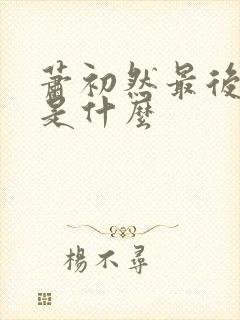 蕭初然最後
是什麼
楊不尋